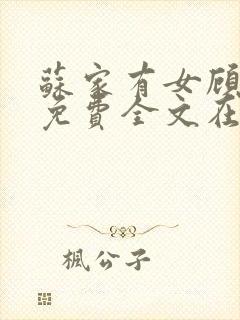 蘇家有女顾
免費全文在
楓公子